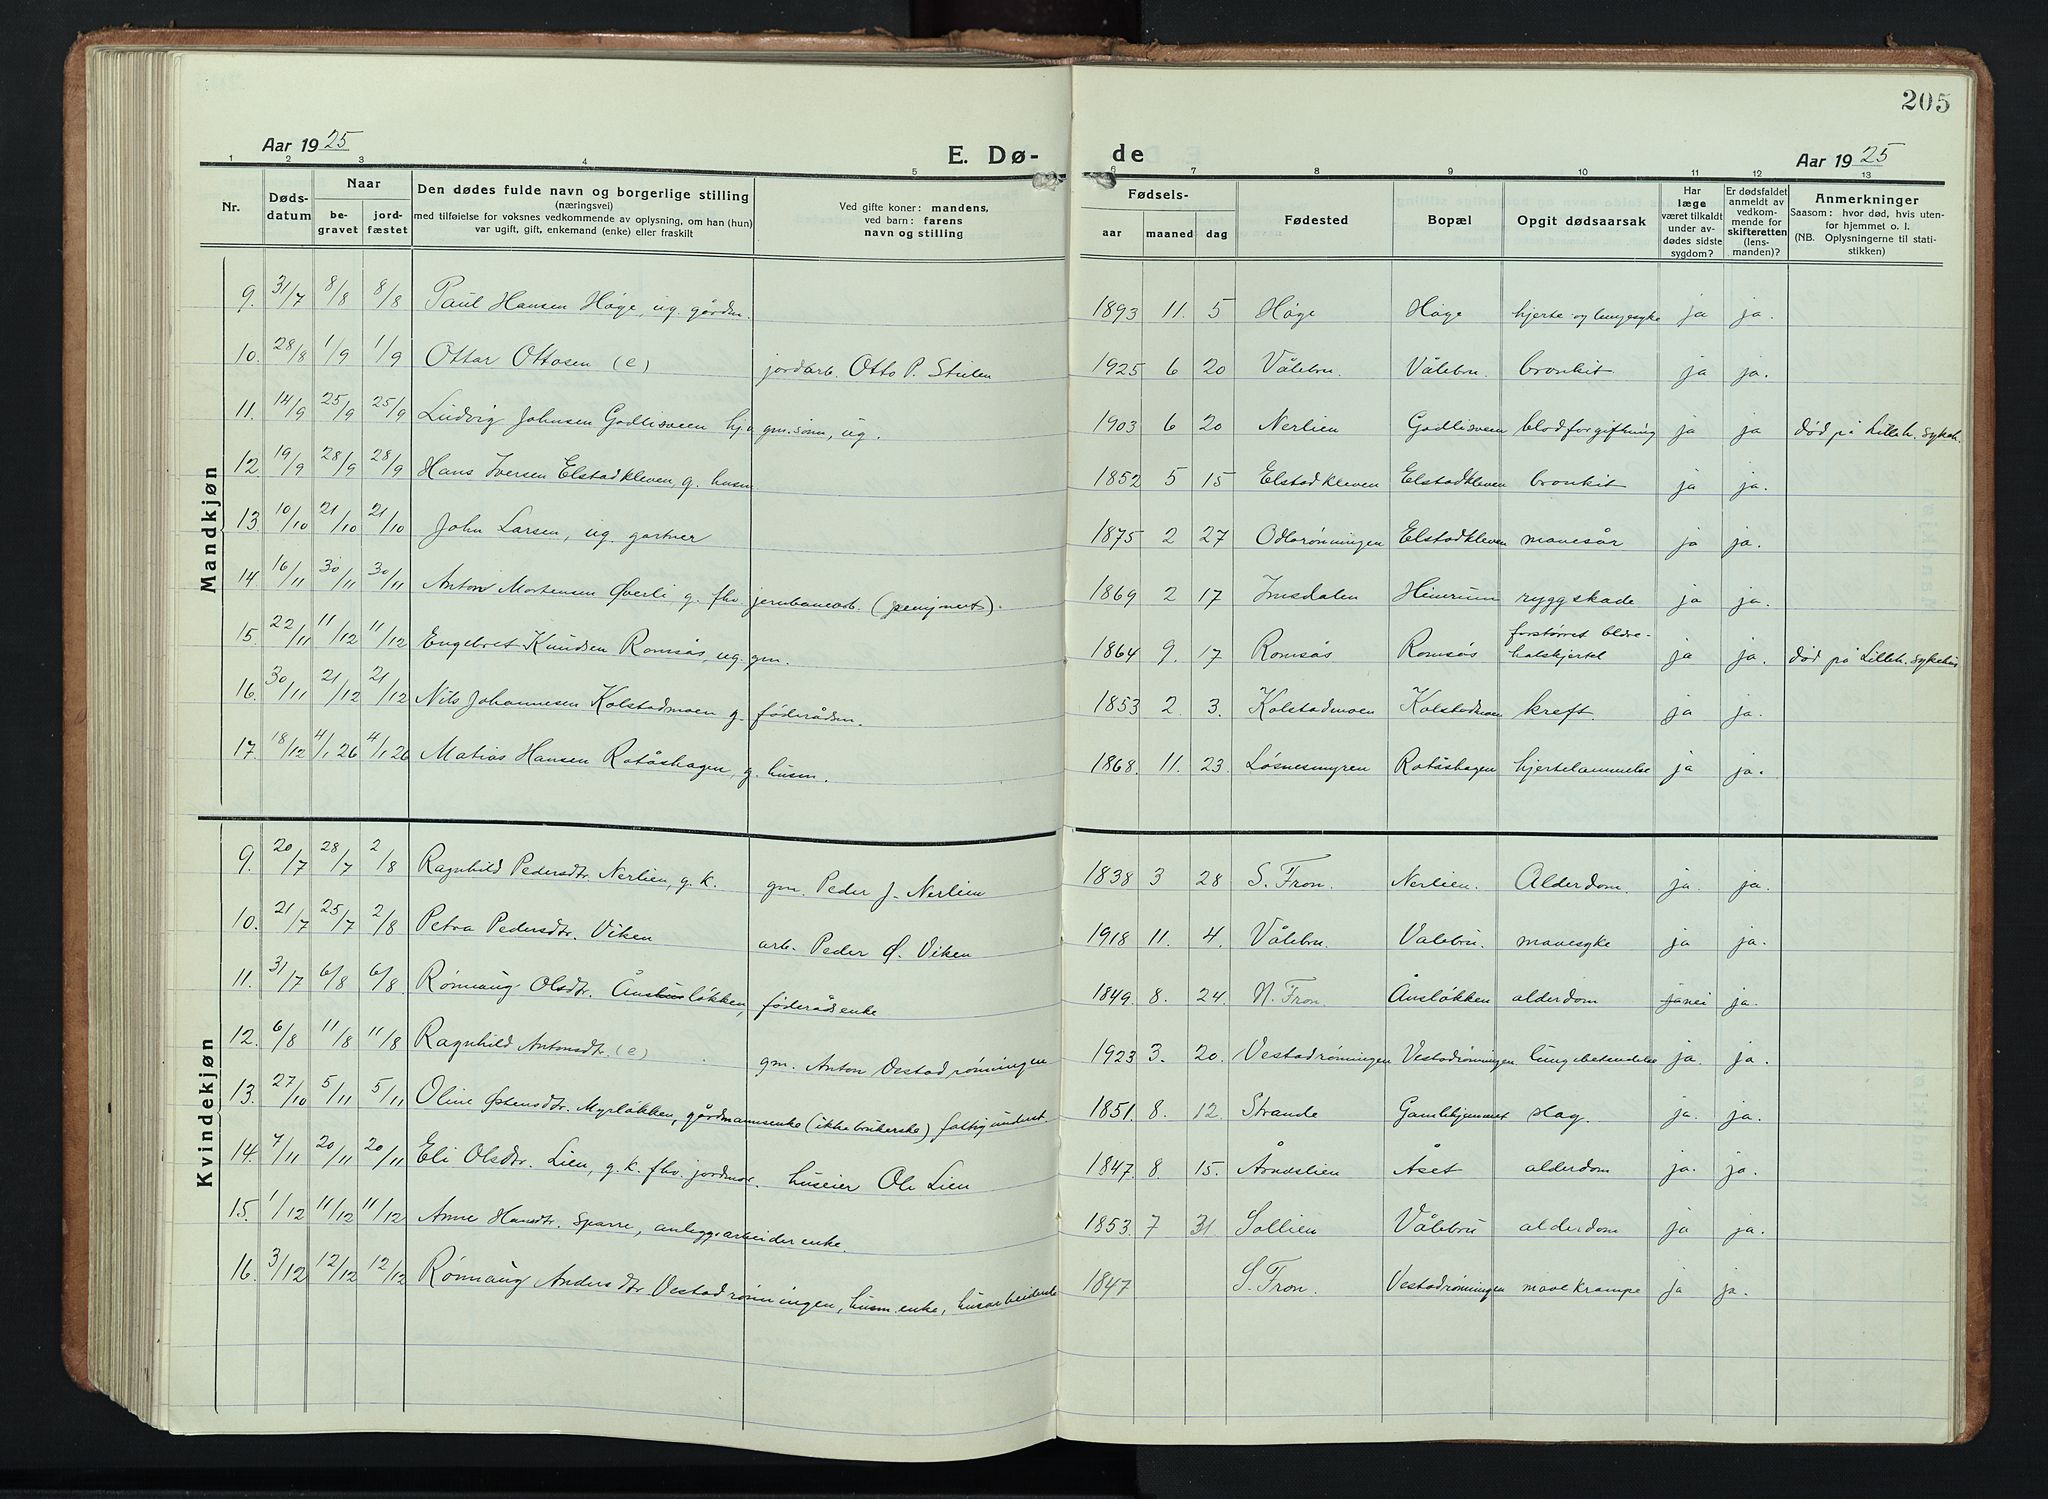 205
Aar 1925
E. Dø-
de
Aar 1925
1 2 3 4 5 6 7 8 9 10 11 12 13
Nr.
Døds-
datum
Naar
be-
gravet
jord-
fæstet
Den dødes fulde navn og borgerlige stilling
(næringsvei)
med tilføielse for voksnes vedkommende av oplysning, om han (hun)
var ugift, gift, enkemand (enke) eller fraskilt
Ved gifte koner: mandens,
ved barn: farens
navn og stilling
Fødsels-
aar maaned dag
Fødested
Bopæl
Opgit dødsaarsak
Har
læge
været tilkaldt
under av-
dødes sidste
sygdom?
Er dødsfaldet
anmeldt av
vedkom-
mende for
skifteretten
(lens-
manden)?
Anmerkninger
Saasom: hvor død, hvis uten-
for hjemmet o. l.
(NB. Oplysningerne til stati-
stikken)
Mandkjøn
9. 31/7 8/8 8/8 Paul Hansen Høge, ug. gårdm. 1893 11. 5 Høge Høge hjerte og lungesyke ja ja.
10. 28/8 1/9 1/9 Ottar Ottosen (e) jordarb. Otto P. Stulen 1925 6 20 Vålebru. Vålebru. bronkit ja ja.
11. 14/9 25/9 25/9 Ludvig Johnsen Godlisveen hj.v. gm.sønn, ug. 1903 6 20 Nerlien Godlisveen blodforgiftning ja ja død på Lilleh. sykeh.
12. 19/9 28/9 28/9 Hans Iversen Elstadkleven, g. husm. 1852 5 15 Elstadkleven Elstadkleven bronkit ja ja.
13 10/10 21/10 21/10 John Larsen, ug. gartner 1875 2 27 Odlorønningen Elstadkleven mavesår ja ja.
14 16/11 30/11 30/11 Anton Mortensen Øverli g. fhv. jernbanearb. (pensjonert). 1869 2 17 Imsdalen Heimrum ryggskade ja ja.
15. 22/11 11/12 11/12 Engebret Knudsen Romsås, ug. gm. 1864 9. 17 Romsås Romsås forstørret bldre-
halskjertel ja ja. død på Lilleh. sykehus
16. 30/11 21/12 21/12 Nils Johannesen Kolstadmoen g. føderådsm. 1853 2 3. Kolstadmoen Kolstadmoen kreft ja ja.
17. 18/12 4/1 26 4/1 26 Matias Hansen Rotåshagen, g. husm. 1868. 11. 23. Løsnesmyren Rotåshagen hjertelammelse ja ja.
Kvindekjøn
9. 20/7 28/7 2/8 Ragnhild Pedersdtr. Nerlien, g. k. gm. Peder J. Nerlien 1838 3 28 S. Fron. Nerlien. Alderdom. ja. ja.
10. 21/7 25/7 2/8 Petra Pedersdtr. Viken arb. Peder Ø. Viken 1918 11. 4. Vålebru. Valebru. mavesyke ja ja.
11. 31/7 6/8 6/8. Rønnaug Olsdtr. Ånsløkken, føderådsenke 1849. 8. 24. N. Fron. Ånsløkken alderdom ja nei ja.
12. 6/8 11/8 11/8 Ragnhild Antonsdtr. (e) gm. Anton Vestadrønningen 1923 3. 20. Vestadrønningen Vestadrønningen lungebetendelse ja. ja.
13. 27/10 5/11 5/11 Oline Østensdtr. Myrløkken, gårdmannsenke (ikke brukerske) fattigunderst. 1851. 8. 12. Strande Gamlehjemmet slag. ja. ja.
14. 7/11 20/11 20/11 Eli Olsdtr. Lien, g. k. fhv. jordmor. huseier Ole Lien 1847. 8 15. Årneslien Åset alderdom ja. ja.
15. 1/12 11/12 11/12 Anne Hansdtr. Sparre, anleggsarbeiderenke. 1853. 7 31 Sollien Vålebru alderdom ja ja.
16. 3/12 12/12 12/12 Rønnaug Andersdtr Vestadrønningen, husm.enke, husarbeidende 1847 S. Fron. Vestadrønningen mavekrampe ja ja.